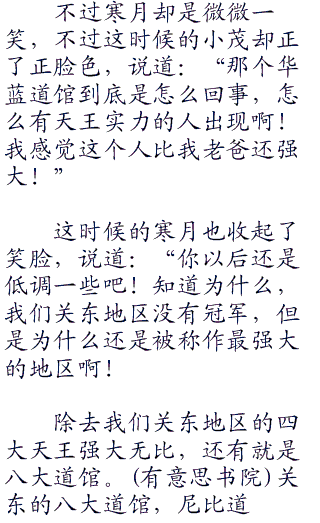 不过寒月却是微微一
笑，不过这时候的小茂却正
了正脸色，说道：“那个华
蓝道馆到底是怎么回事，怎
么有天王实力的人出现啊！
我感觉这个人比我老爸还强
大！”
这时候的寒月也收起了
笑脸，说道：“你以后还是
低调一些吧！知道为什么，
我们关东地区没有冠军，但
是为什么还是被称作最强大
的地区啊！
除去我们关东地区的四
大天王强大无比，还有就是
八大道馆。(有意思书院)关
东的八大道馆，尼比道